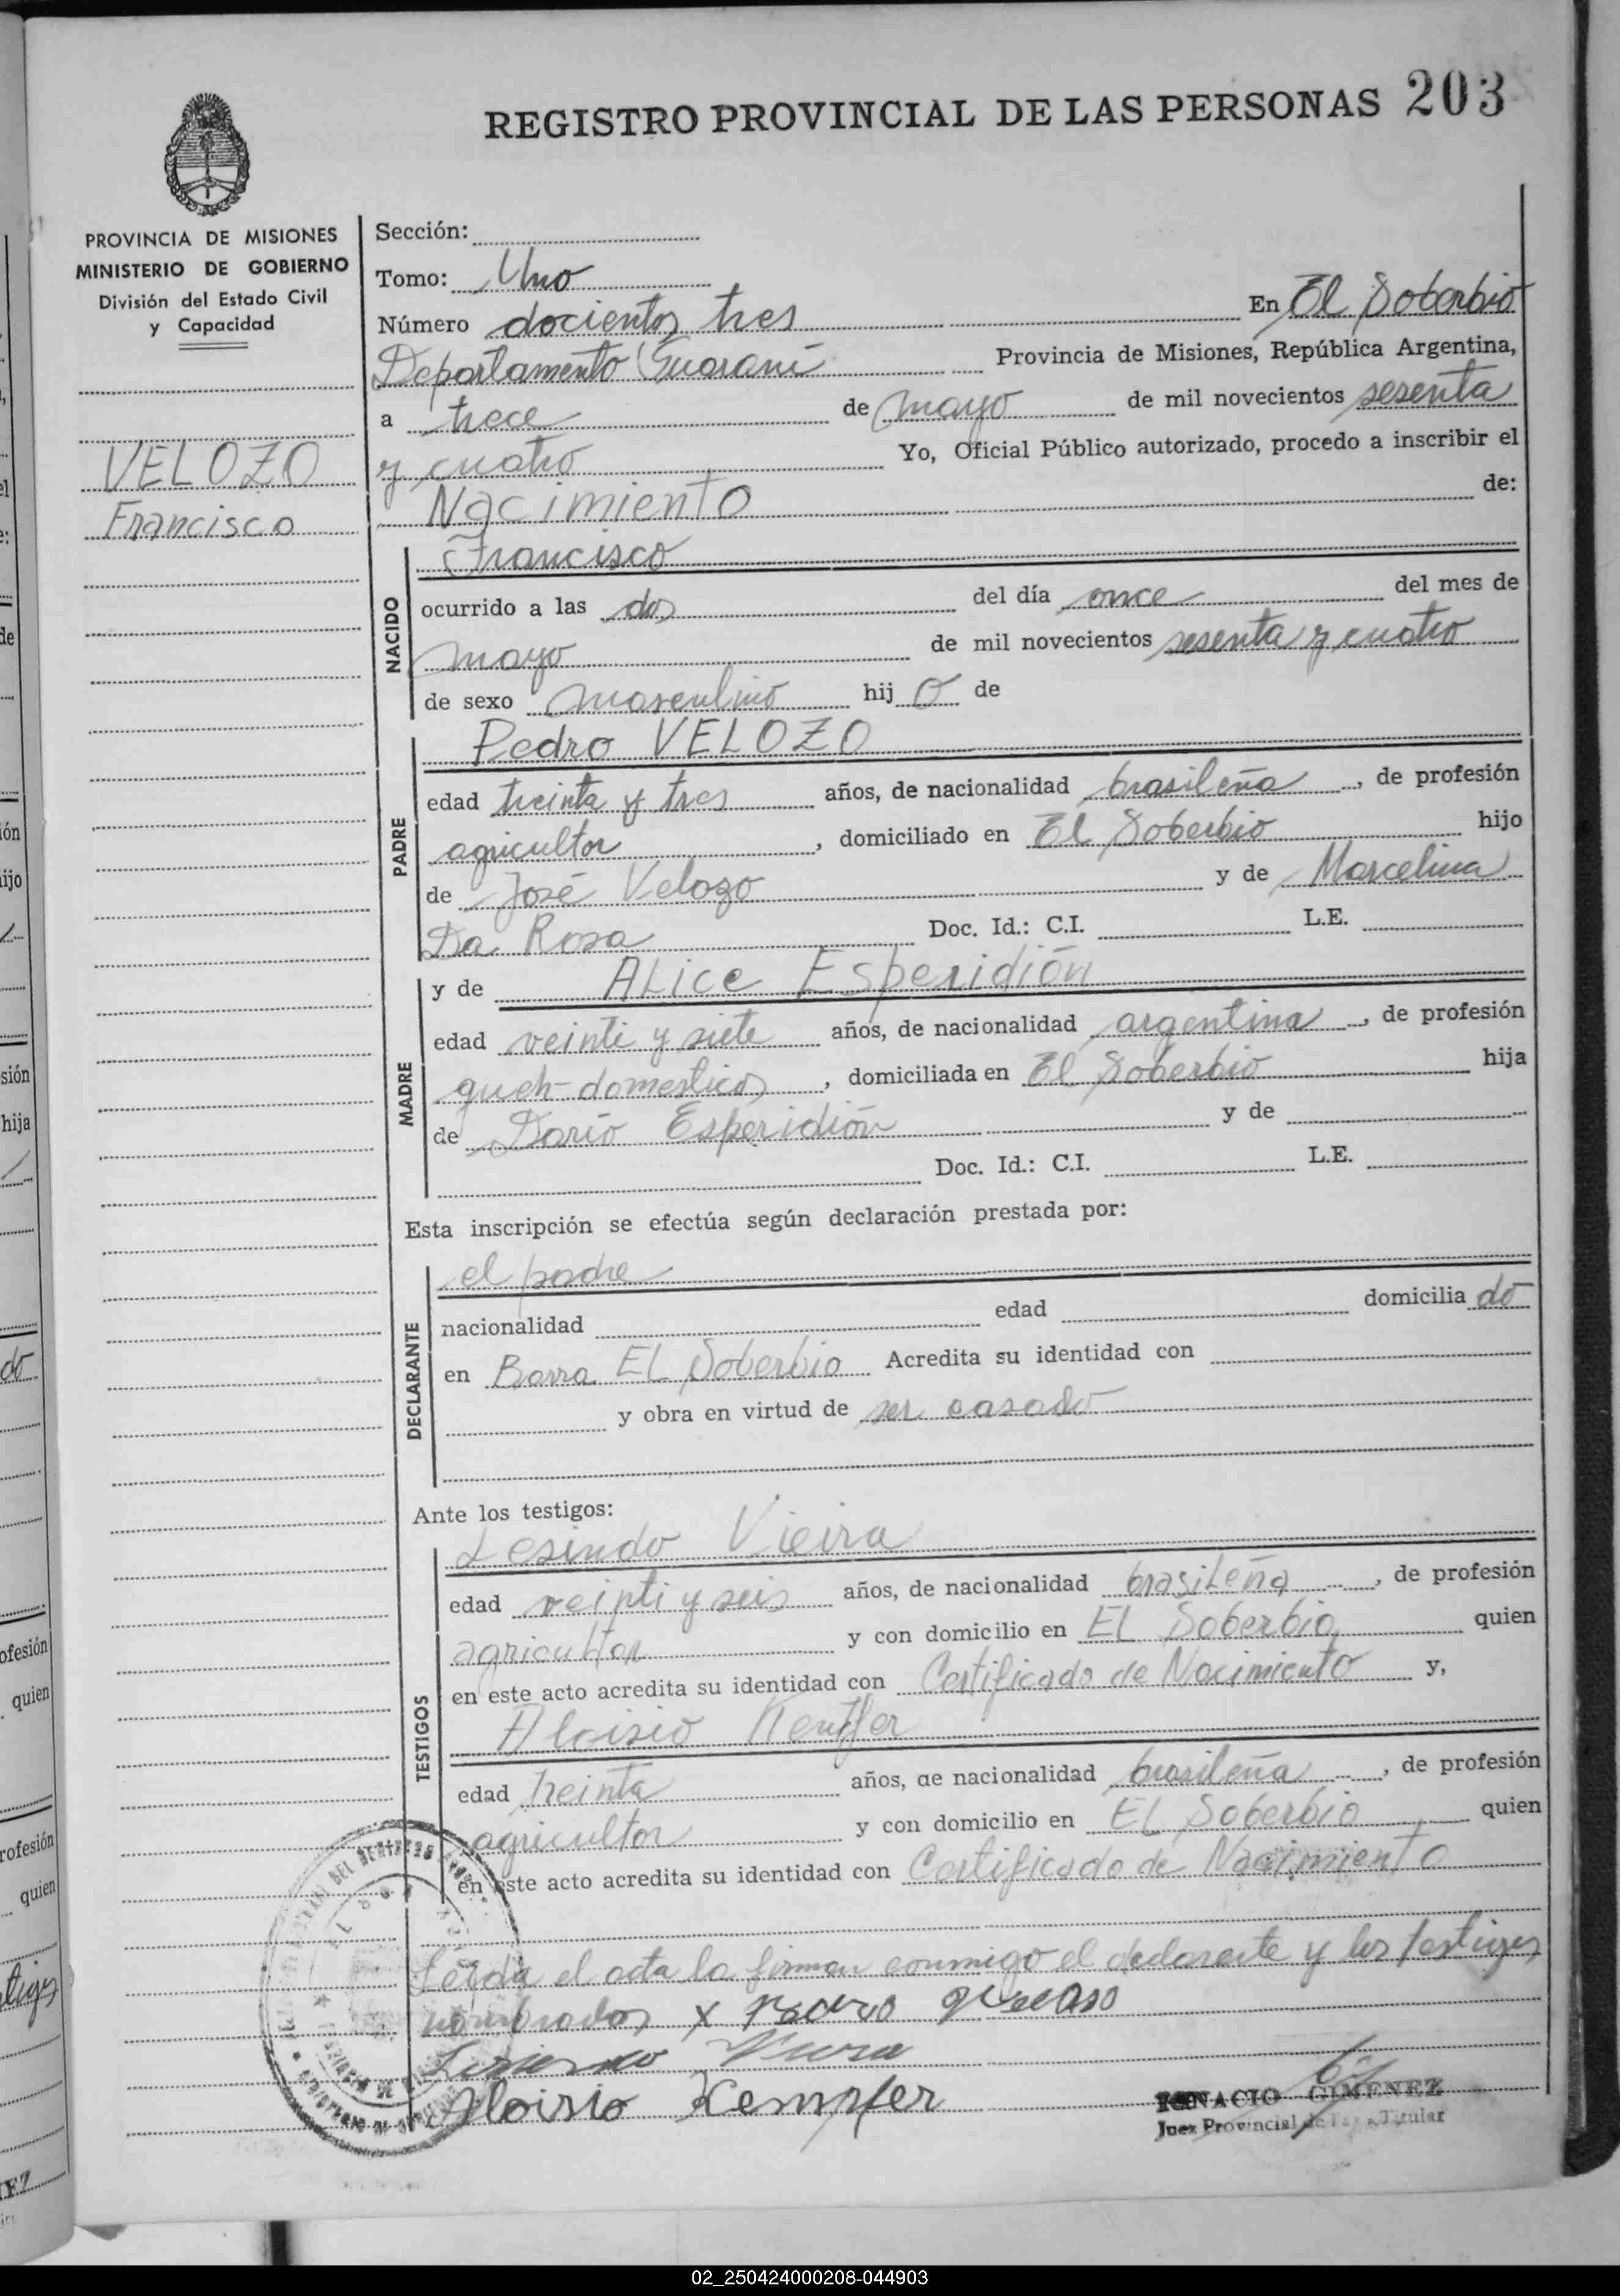 REGISTRO PROVINCIAL DE LAS PERSONAS 203
PROVINCIA DE MISIONES
MINISTERIO DE GOBIERNO
División del Estado Civil
y Capacidad
VELOZO
Francisco
Sección:
Tomo: Uno
Número docientos tres En El Soberbio
Departamento Guaraní Provincia de Misiones, República Argentina,
a trece de mayo de mil novecientos sesenta
y cuatro Yo, Oficial Público autorizado, procedo a inscribir el
Nacimiento de:
NACIDO
Francisco
ocurrido a las dos del día once del mes de
mayo de mil novecientos sesenta y cuatro
de sexo masculino hij o de
PADRE
Pedro VELOZO
edad treinta y tres años, de nacionalidad brasileña, de profesión
agricultor, domiciliado en El Soberbio hijo
de José Velozo y de Marcelina
Da Rosa Doc. Id.: C.I. L.E.
MADRE
y de ALice Esperidión
edad veinti y siete años, de nacionalidad argentina, de profesión
queh-domesticos, domiciliada en El Soberbio hija
de Dario Esperidión y de
Doc. Id.: C.I. L.E.
Esta inscripción se efectúa según declaración prestada por:
DECLARANTE
el padre
nacionalidad edad domicilia do
en Barra EL Soberbio Acredita su identidad con
y obra en virtud de ser casado
Ante los testigos:
TESTIGOS
Lesindo Vieira
edad veinti y seis años, de nacionalidad brasileña, de profesión
agricultor y con domicilio en EL Soberbio quien
en este acto acredita su identidad con Certificado de Nacimiento y,
Aloisio
edad treinta años, de nacionalidad brasileña, de profesión
agricultor y con domicilio en EL Soberbio quien
en este acto acredita su identidad con Certificado de Nacimiento
Leída el acta la firman conmigo el declarante y los testigos
nombrados x
Aloisio Kempfer
IGNACIO GIMENEZ
Juez Provincial de Paz Titular
02_250424000208-044903